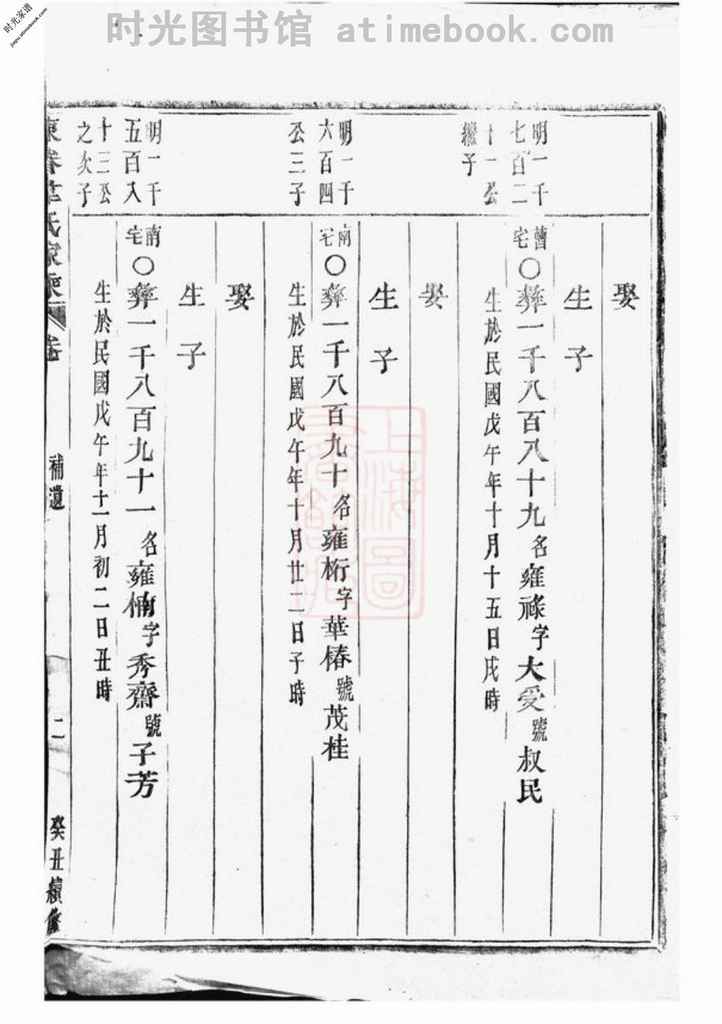 时光家谱
jiapu.atimebook.com
时光图书馆 atimebook.com
娶
生子
明一千
七百二
十一公
繼子
曾宅
○彝一千八百八十九名雍祿字大受號叔民
生於民國戊午年十月十五日戌時
娶
生子
明一千
六百四
公三子
南宅
○彝一千八百九十名雍桁字華椿號茂桂
生於民國戊午年十月廿二日子時
娶
生子
明一千
五百入
十三公
之次子
南宅
○彝一千八百九十一名雍楠字秀齋號子芳
生於民國戊午年十一月初二日丑時
氏家乘
補遺
二
癸丑續修
上海圖